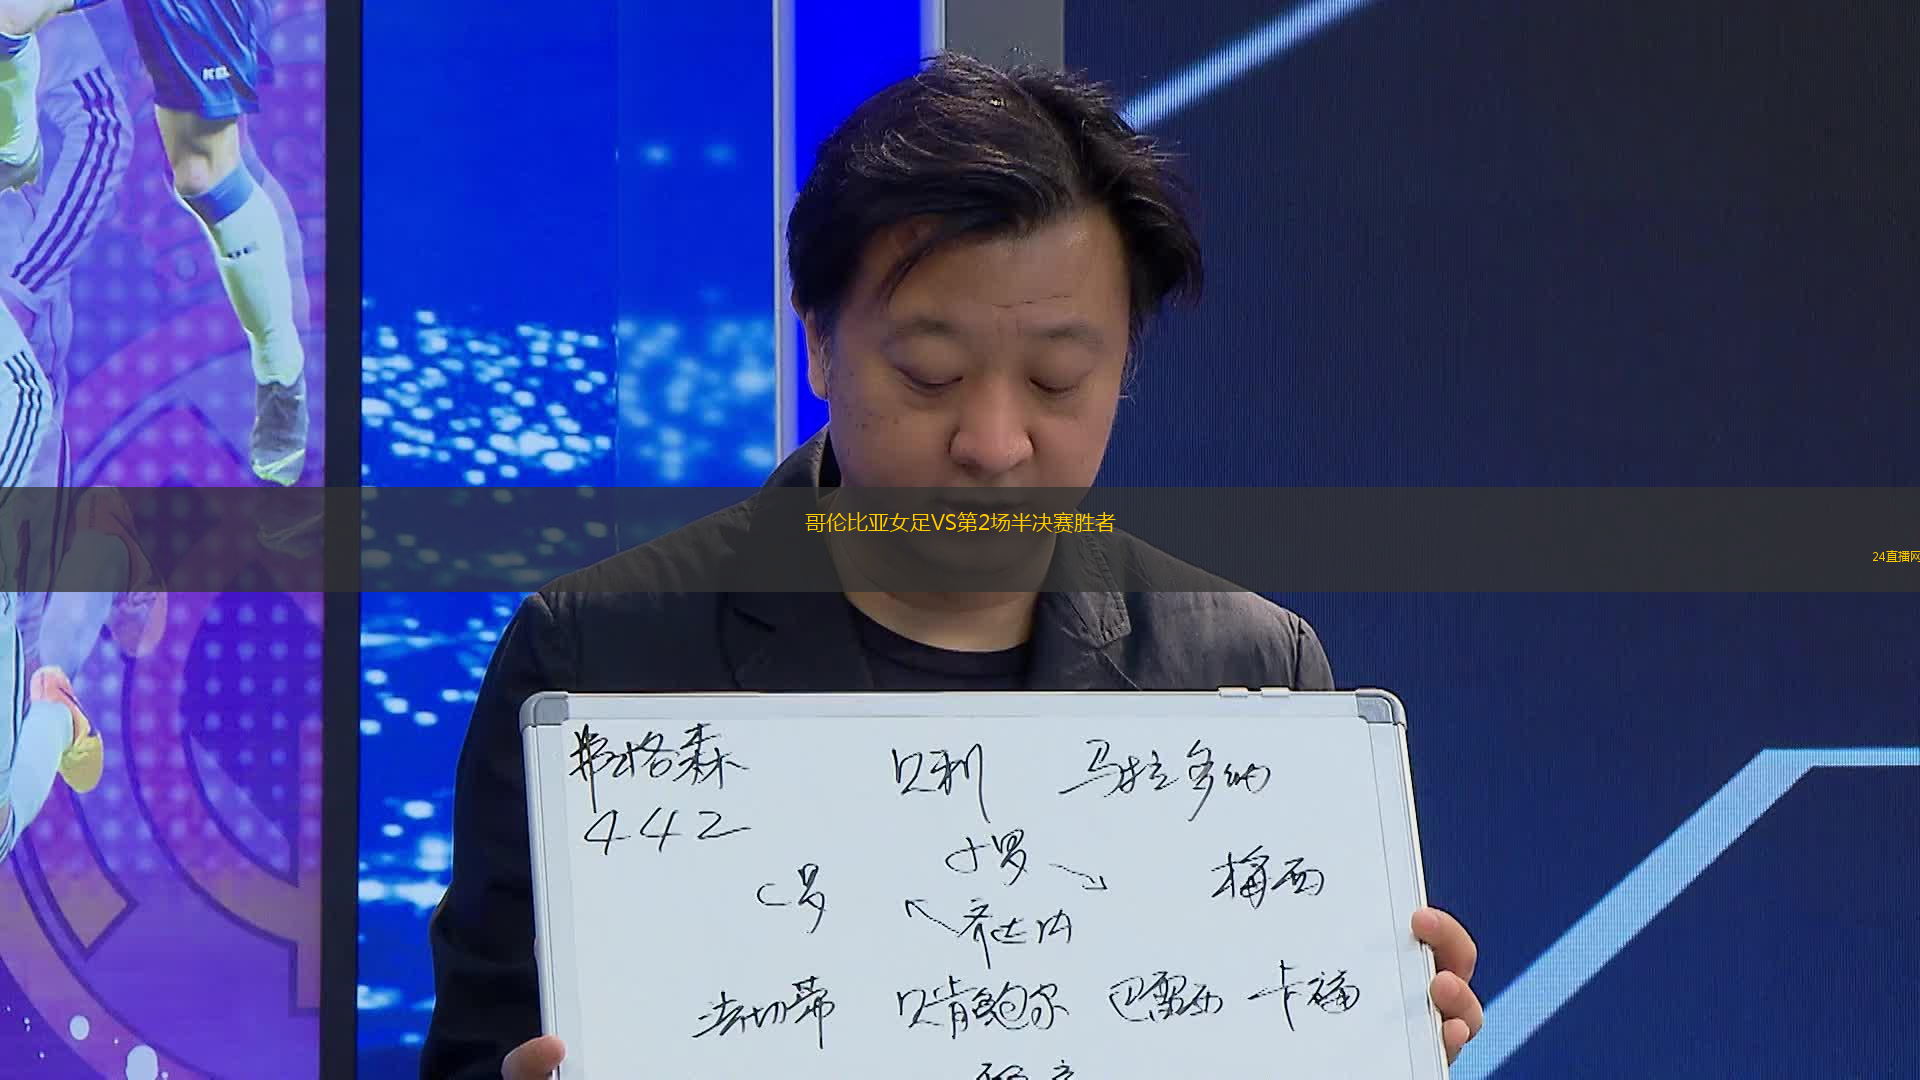 KEL
哥伦比亚女足VS第2场半决赛胜者
24直播网
弗格森 贝利 马拉多纳
442
小罗
C罗 梅西
齐达内
法切蒂 贝肯鲍尔 巴雷西 卡福